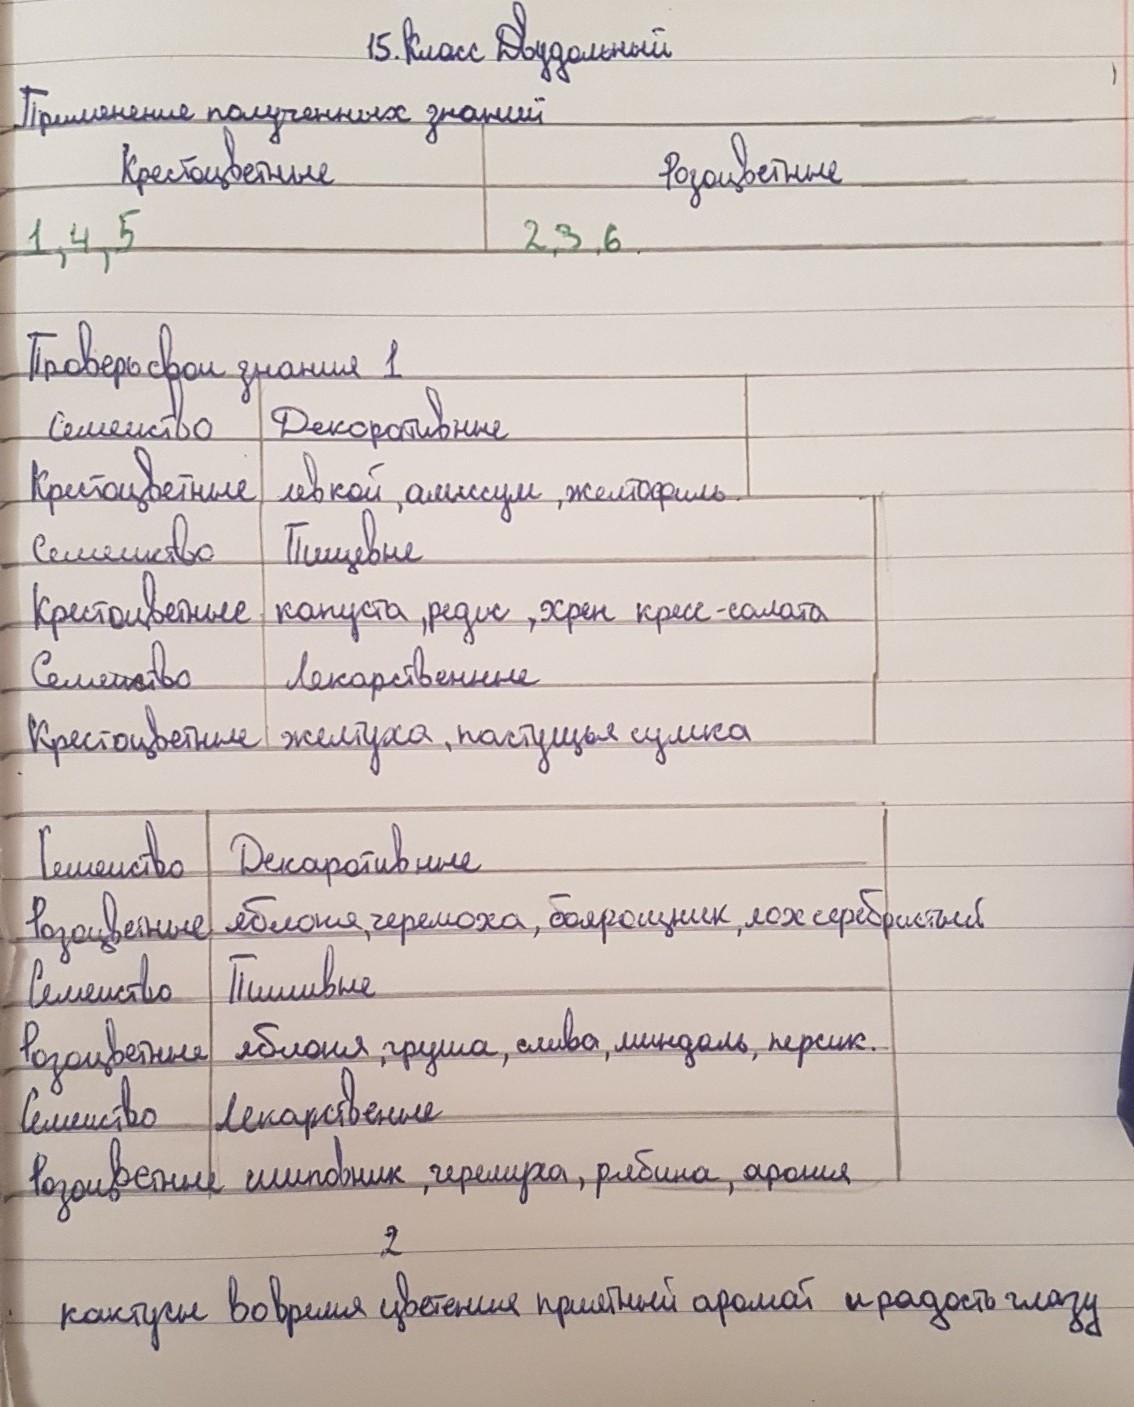 15. Класс Двудольный
Применение полученных знаний
Крестоцветные Розоцветные
1, 4, 5 2, 3, 6.
Проверь свои знания 1
Семейство Декоротивные
Крестоцветные левкой, алиссум, желтофиль.
Семейство Пищевые
Крестоцветные капуста, редис, хрен кресс-салата
Семейство Лекарственные
Крестоцветные желтуха, пастушья сумка
Семейство Декаротивные
Розоцветные яблоня, черемоха, боярощник, лох серебристый
Семейство Пишивые
Розоцветные яблоня, груша, слива, миндаль, персик.
Семейство Лекарственые
Розоцветные шиповник, черемуха, рябина, арония
2
кактусы во время цветения приятный аромат и радость глазу